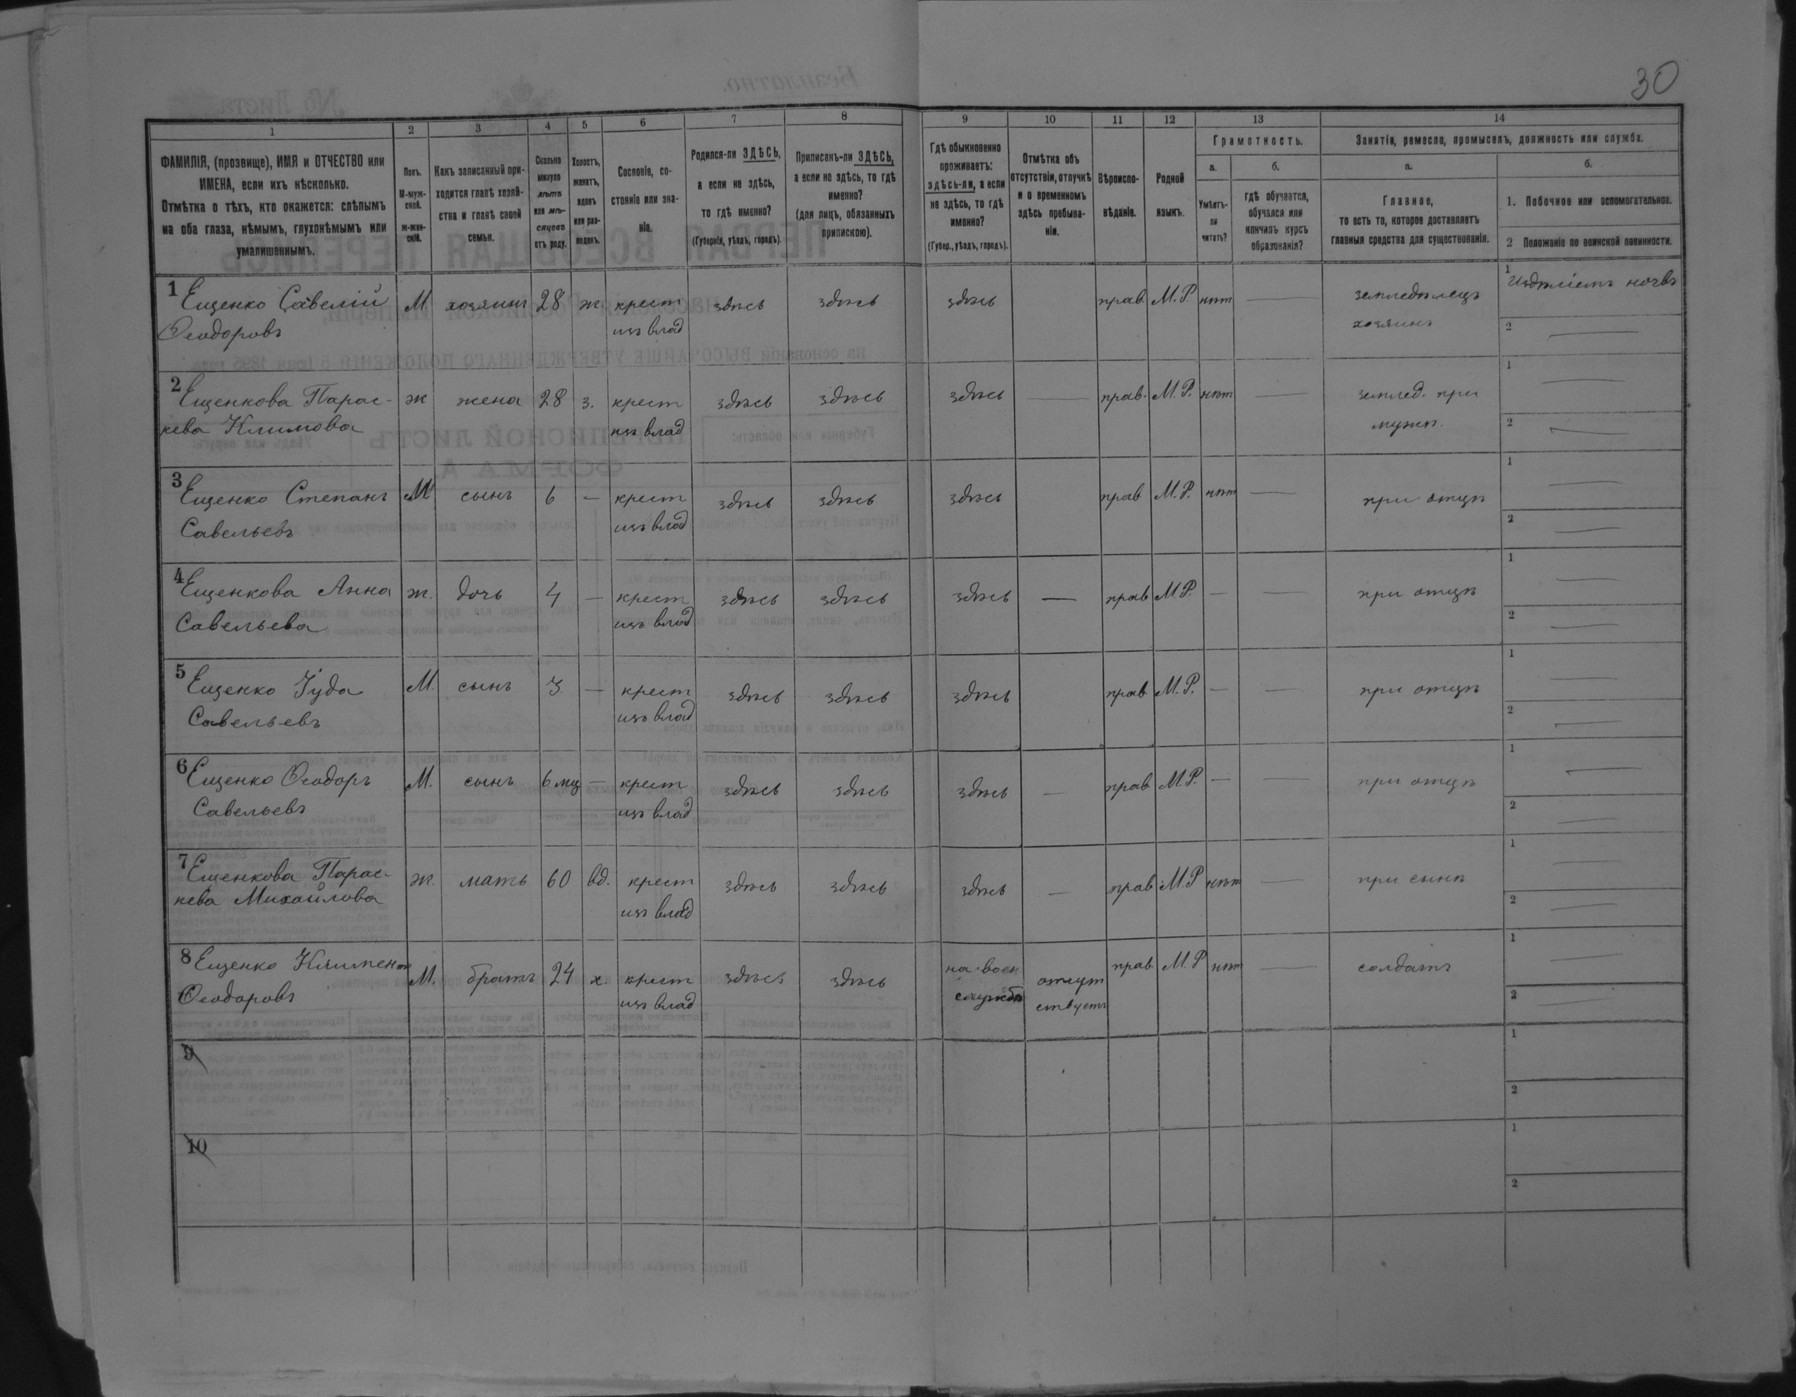 30
1
2
3
4
5
6
7
8
9
10
11
12
13
14
ФАМИЛІЯ, (прозвище), ИМЯ и ОТЧЕСТВО или
ИМЕНА, если ихъ нѣсколько.
Отмѣтка о тѣхъ, кто окажется: слѣпымъ
на оба глаза, нѣмымъ, глухонѣмымъ или
умалишеннымъ.
Полъ.
М-муж-
ской.
ж-жен-
скій.
Какъ записанный при-
ходится главѣ хозяй-
ства и главѣ своей
семьи.
Сколько
минуло
лѣтъ
или мѣ-
сяцевъ
отъ роду.
Холостъ,
женатъ,
вдовъ
или раз-
веденъ.
Сословіе, со-
стояніе или зва-
ніе.
Родился-ли ЗДѢСЬ,
а если не здѣсь,
то гдѣ именно?
(Губернія, уѣздъ, городъ).
Приписанъ-ли ЗДѢСЬ,
а если не здѣсь, то гдѣ
именно?
(для лицъ, обязанныхъ
припискою).
Гдѣ обыкновенно
проживаетъ:
здѣсь-ли, а если
не здѣсь, то гдѣ
именно?
(Губер., уѣздъ, городъ).
Отмѣтка объ
отсутствіи, отлучкѣ
и о временномъ
здѣсь пребыва-
ніи.
Вѣроиспо-
вѣданіе.
Родной
языкъ.
Грамотность.
а.
Умѣетъ-
ли
читать?
б.
гдѣ обучается,
обучался или
кончилъ курсъ
образованія?
Занятіе, ремесло, промыселъ, должность или служба.
а.
Главное,
то есть то, которое доставляетъ
главныя средства для существованія.
б.
1. Побочное или вспомогательное.
2 Положеніе по воинской повинности.
1 Ещенко Савелій М хозяинъ 28 ж крест здѣсь здѣсь здѣсь прав М.Р. нѣт — земледѣлецъ 1
Ѳеодоровъ изъ влад хозяинъ 2 —
2 Ещенкова Парас- ж жена 28 з. крест здѣсь здѣсь здѣсь — прав. М.Р. нѣт — землед. при 1 —
кева Климова изъ влад мужѣ. 2 —
3 Ещенко Степанъ М сынъ 6 — крест здѣсь здѣсь здѣсь прав М.Р. нѣт — при отцѣ 1 —
Савельевъ изъ влад 2 —
4 Ещенкова Анна ж. дочь 4 — крест здѣсь здѣсь здѣсь — прав М.Р. — — при отцѣ 1 —
Савельева изъ влад 2 —
5 Ещенко Іуда М. сынъ 3 — крест здѣсь здѣсь здѣсь прав М.Р. — — при отцѣ 1 —
Савельевъ изъ влад 2 —
6 Ещенко Ѳеодоръ М. сынъ 6 мц — крест здѣсь здѣсь здѣсь — прав М.Р. — — при отцѣ 1 —
Савельевъ изъ влад 2 —
7 Ещенкова Парас- ж. мать 60 вд. крест здѣсь здѣсь здѣсь — прав М.Р нѣт — при сынѣ 1 —
кева Михайлова изъ влад 2 —
8 Ещенко Климент М. братъ 24 х. крест здѣсь здѣсь на воен отсут прав М.Р нѣт — солдатъ 1 —
Ѳеодоровъ изъ влад службѣ ствуетъ 2 —
9 1
2
10 1
2